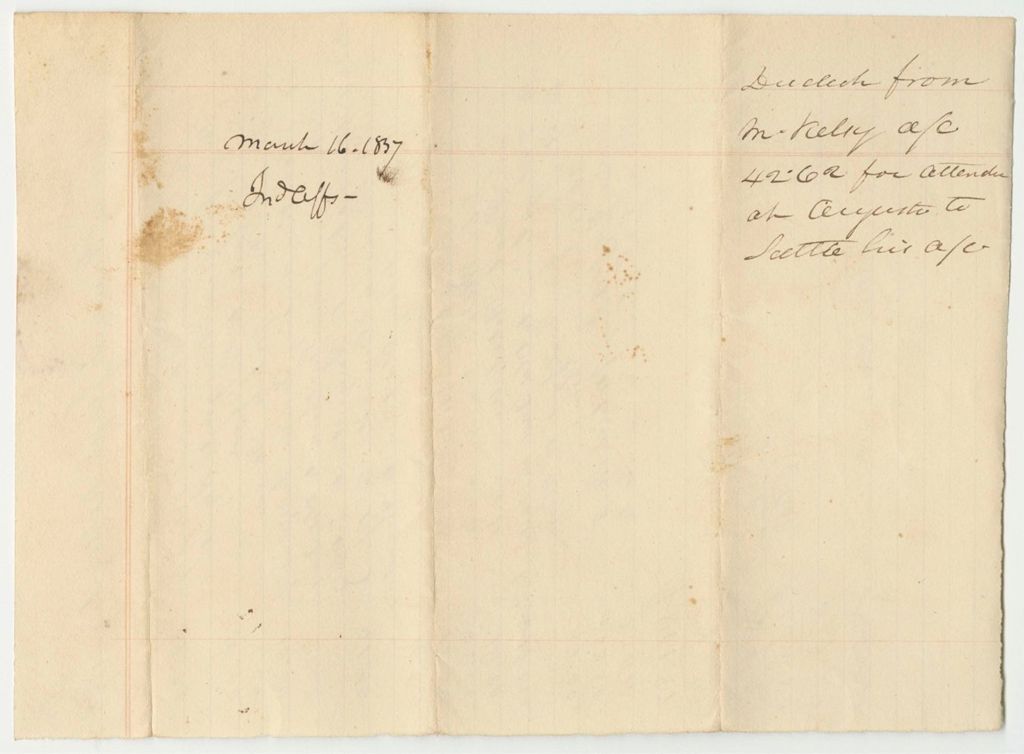 March 16. 1837
Ind Affs -
Deduct from
Mr. Kelsy a/c
42.62 for attendn
at Augusta to
Settle his a/c